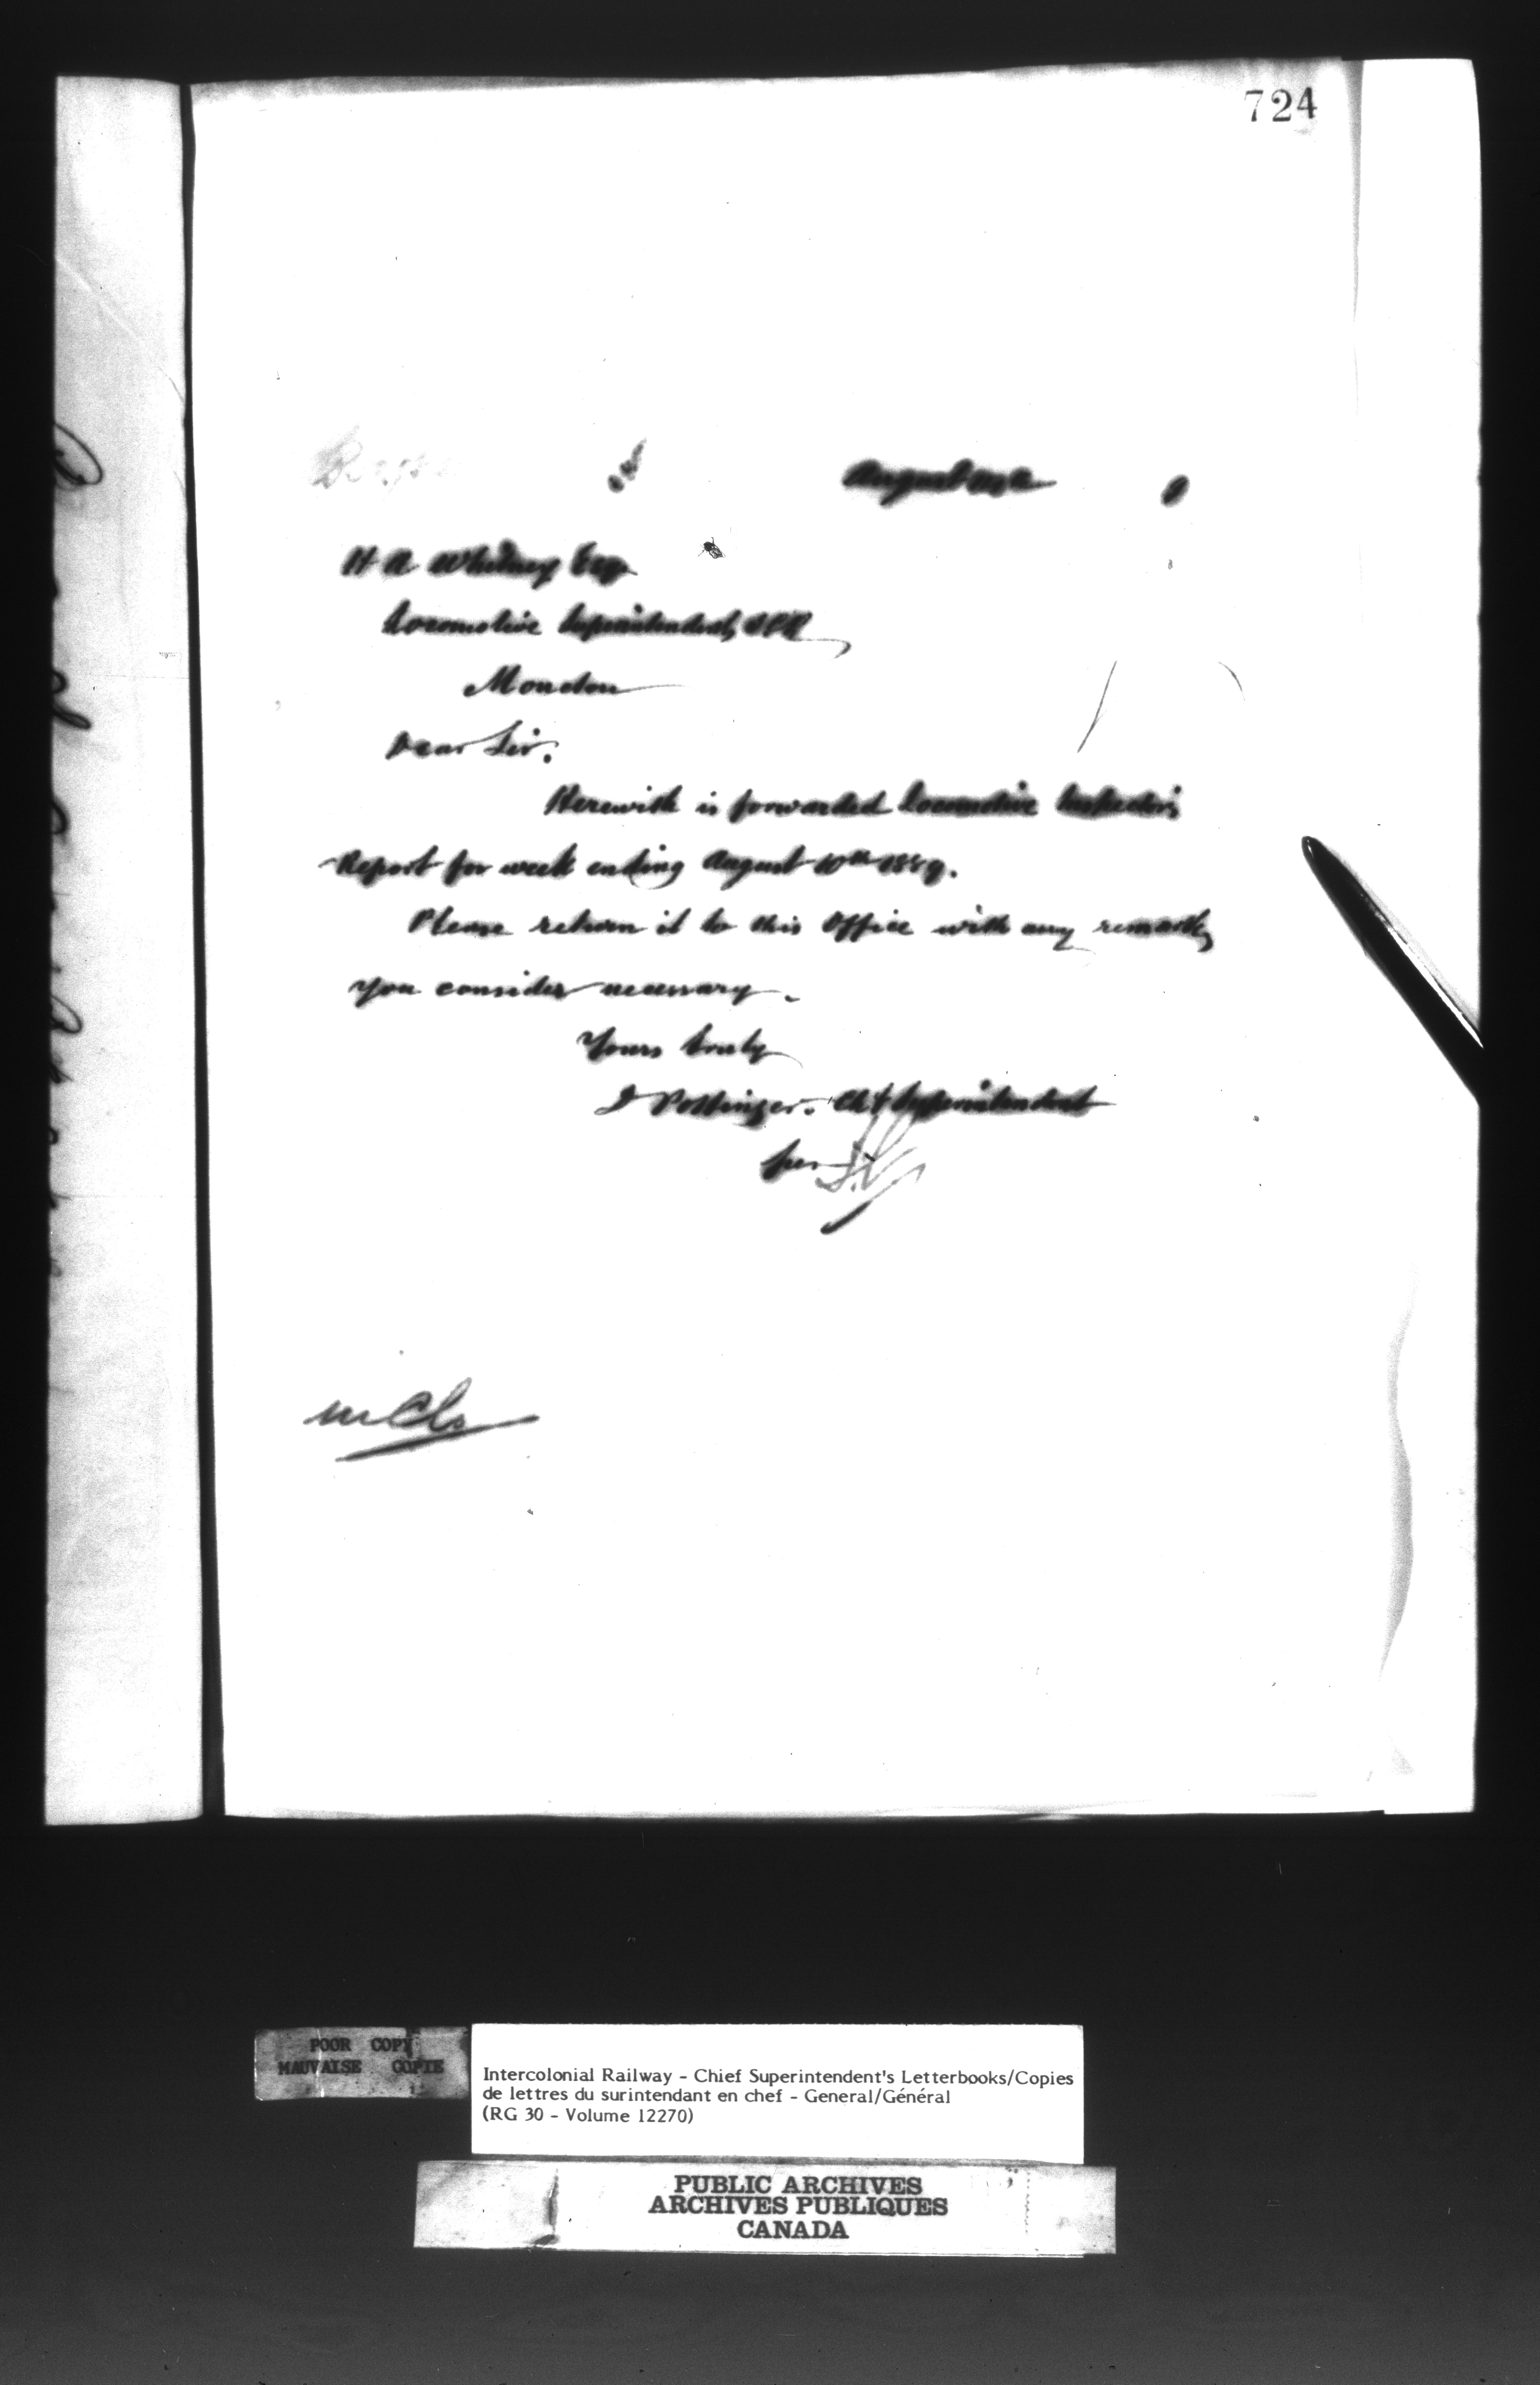 724
August
H A Whitney Esq
Locomotive Superintendent, ICR
Moncton
Dear Sir.
Herewith is forwarded Locomotive Inspector's
Report for week ending August 10th 1889.
Please return it to this Office with any remarks
you consider necessary.
Yours truly
D Pottinger. Chf Superintendent
per
POOR COPY
MAUVAISE COPIE
Intercolonial Railway - Chief Superintendent's Letterbooks/Copies
de lettres du surintendant en chef - General/Général
(RG 30 - Volume 12270)
PUBLIC ARCHIVES
ARCHIVES PUBLIQUES
CANADA